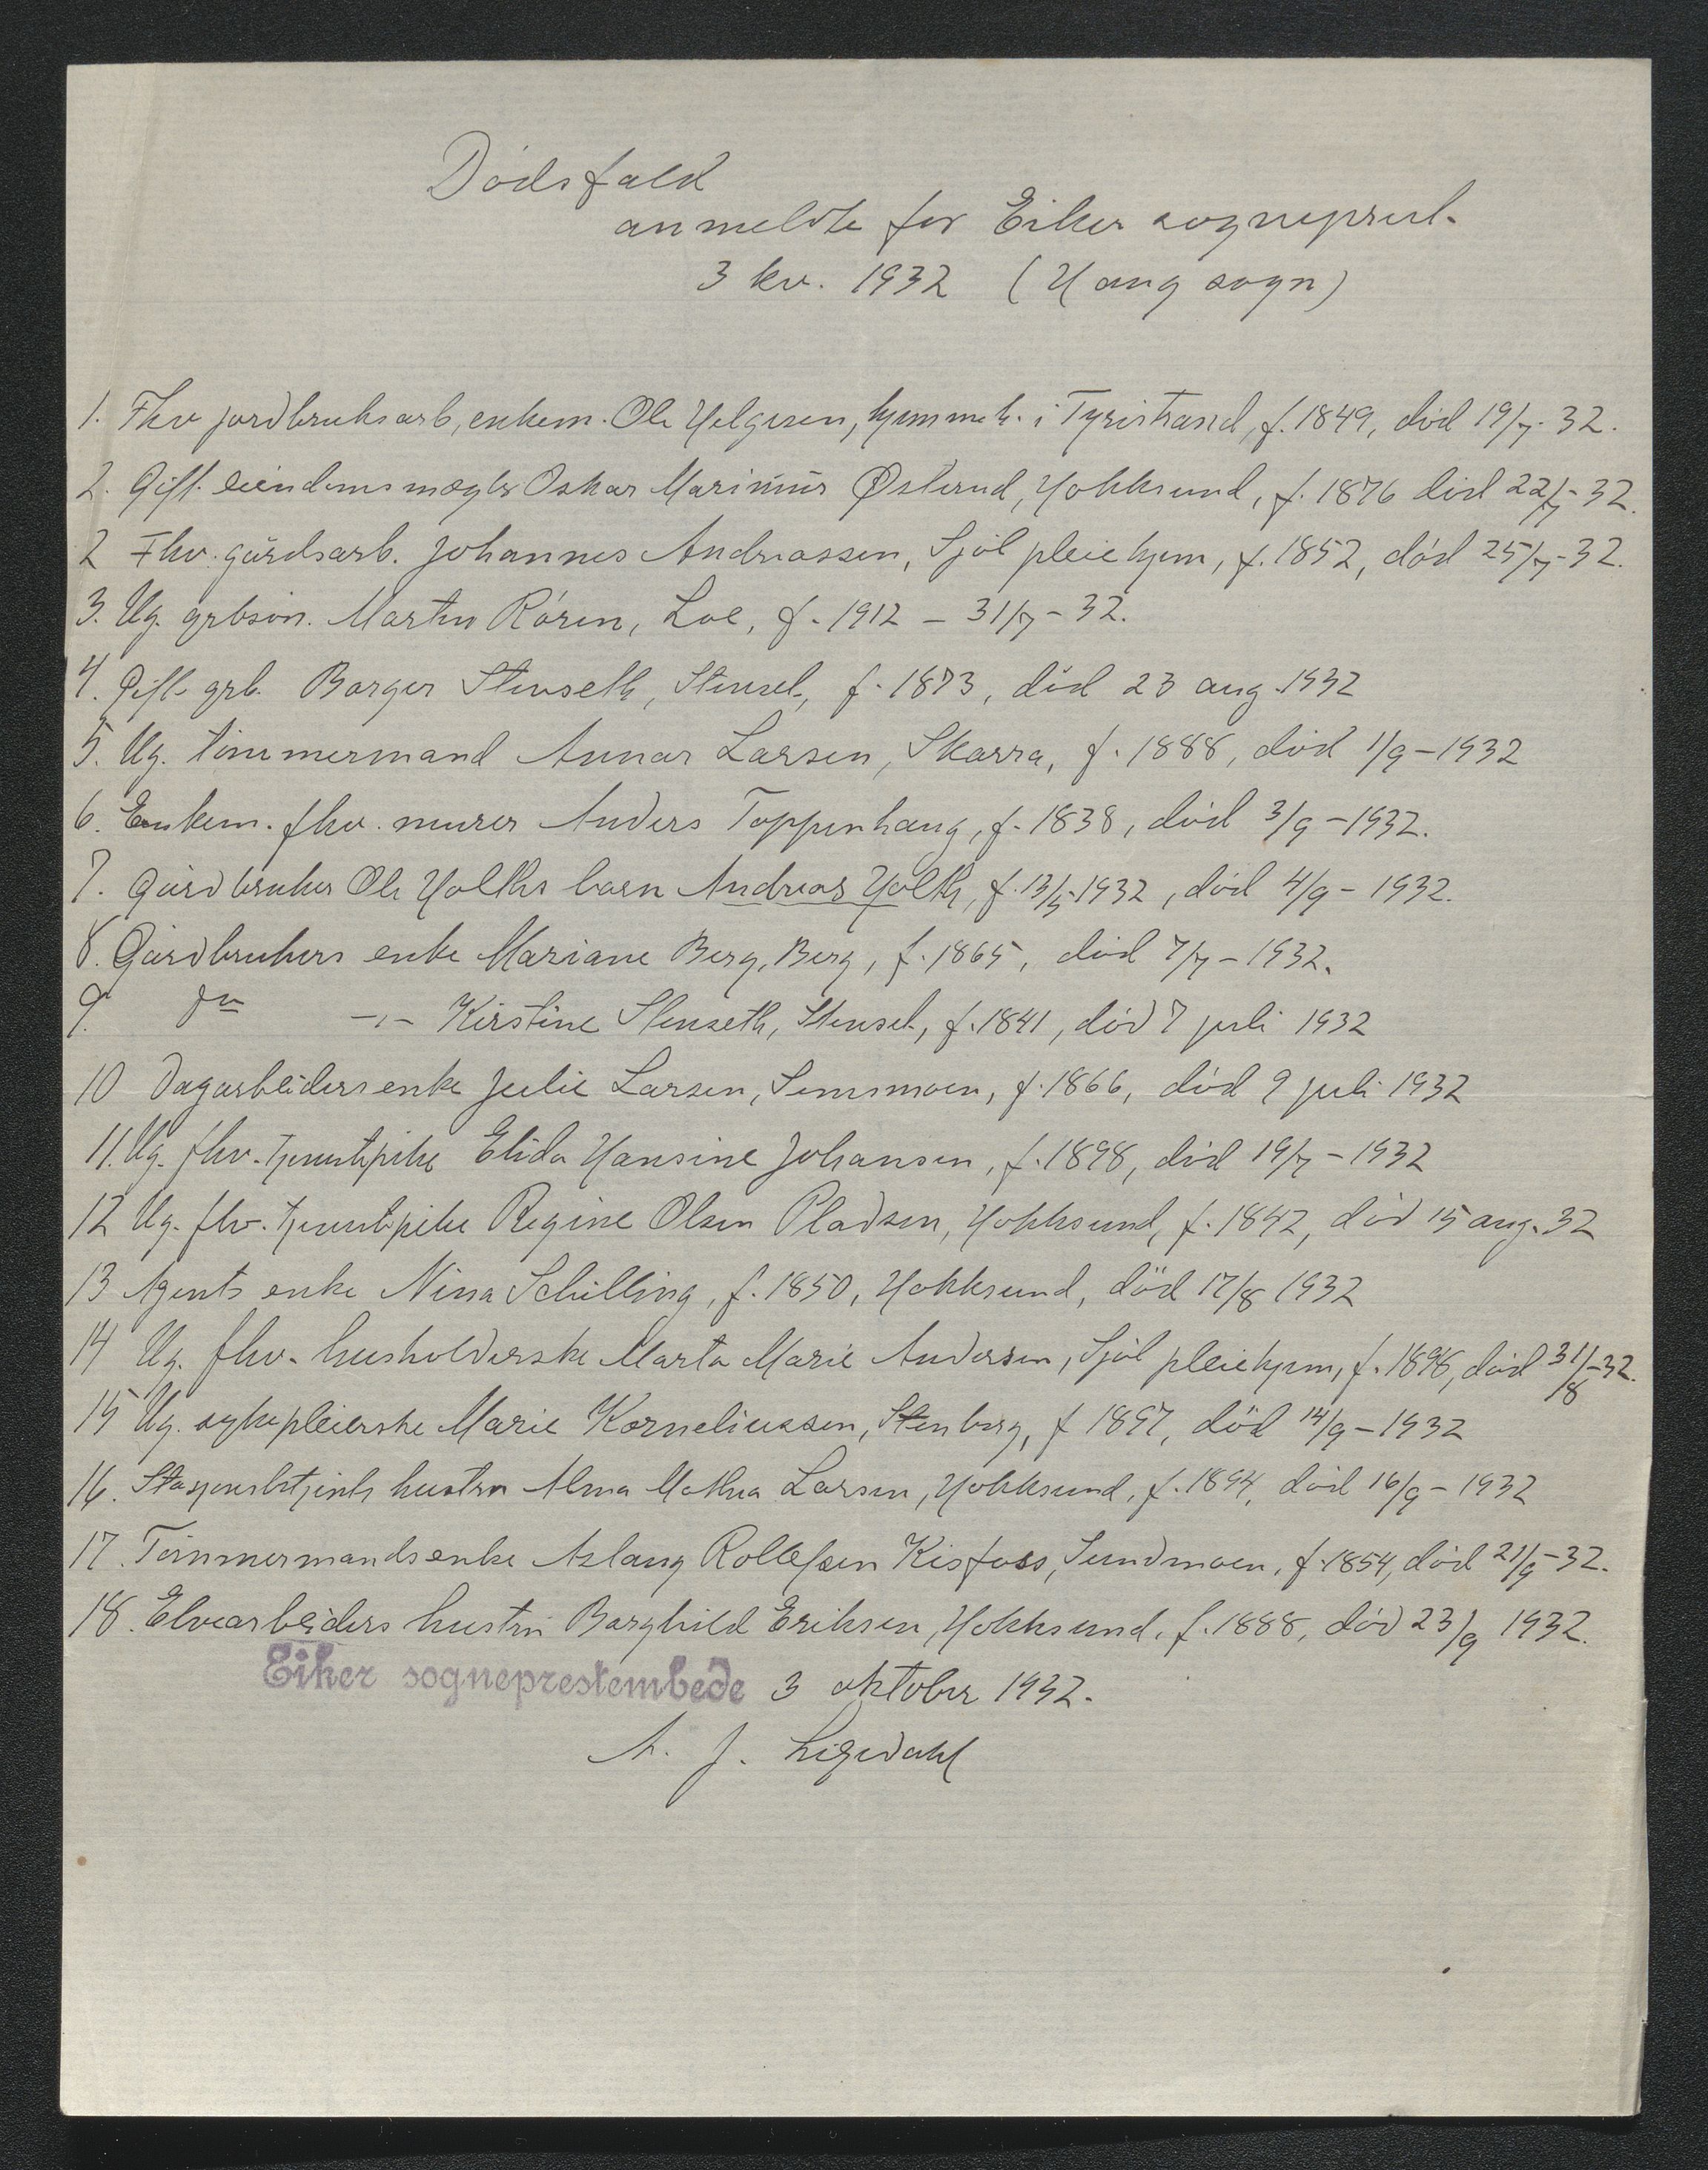 Dödsfald
anmeldte for Eiker sogneprest.
3 kv. 1932 (Haug sogn)
1. Fhv jordbruksarb, enkem. Ole Helgesen, hjemmeh. i Tyristrand, f. 1849, död 19/7-32.
2. Gift eiendomsmægler Oskar Marinius Østerud, Hokksund, f. 1876 död 22/7-32.
2 Fhv. gårdsarb. Johannes Andreassen, Sjöl pleiehjem, f. 1852, död 25/7-32.
3. Ug. grbsön. Martin Rören, Loe, f. 1912 – 31/7-32.
4. Gift grb. Borger Stenseth, Stenset, f. 1873, död 23 aug. 1932
5. Ug. tömmermand Annar Larsen, Skarra, f. 1888, död 1/9-1932
6. Enkem. fhv. murer Anders Toppenhaug, f. 1838, död 3/9-1932.
7. Gårdbruker Ole Holths barn Andreas Holth, f. 13/5-1932, död 4/9-1932.
8. Gårdbrukers enke Mariane Berg, Berg, f. 1865, död 7/7-1932.
9. do -"- Kirstine Stenseth, Stenset, f. 1841, död 7 juli 1932
10 Dagarbeiders enke Julie Larsen, Semsmoen, f. 1866, död 9 juli 1932
11. Ug. fhv. tjenestepike Elida Hansine Johansen, f. 1898, död 19/7-1932
12 Ug. fhv. tjenestepike Regine Olsen Pladsen, Hokksund, f. 1842, död 15 aug. 32
13 Agents enke Nina Schilling, f. 1850, Hokksund, död 17/8 1932
14 Ug. fhv. husholderske Marta Marie Andersen, Sjöl pleiehjem, f. 1898, död 31/8-32.
15 Ug. sykepleierske Marie Korneliussen, Stenberg, f 1897, död 14/9-1932
16. Stasjonsbetjents hustru Alma Mathea Larsen, Hokksund, f. 1894, död 16/9-1932
17. Tömmermands enke Aslaug Rollefsen Kisfoss, Sundmoen, f. 1854, död 21/9-32.
18. Elvearbeiders hustru Borghild Eriksen, Hokksund, f. 1888, död 23/9 1932.
Eiker sogneprestembede 3 oktober 1932.
A. J. Ligedahl